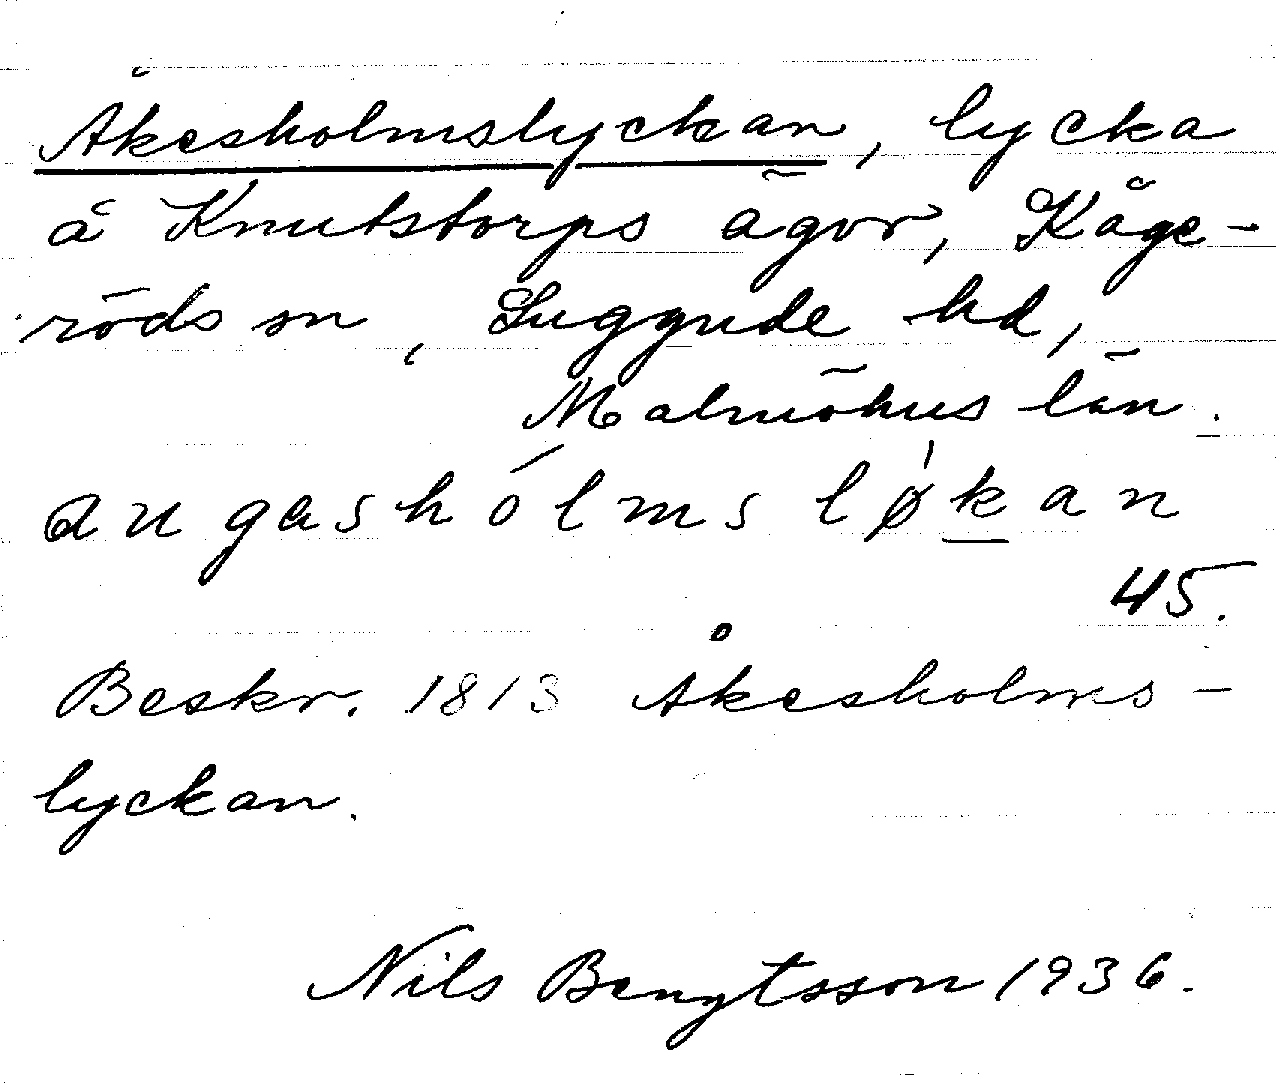 Åkesholmslyckan, lycka
å Knutstorps ägor, Kåge-
röds sn, Luggude hd,
Malmöhus län.
augashólms løkan
45.
Beskr. 1813 Åkesholms-
lyckan.
Nils Bengtsson 1936.